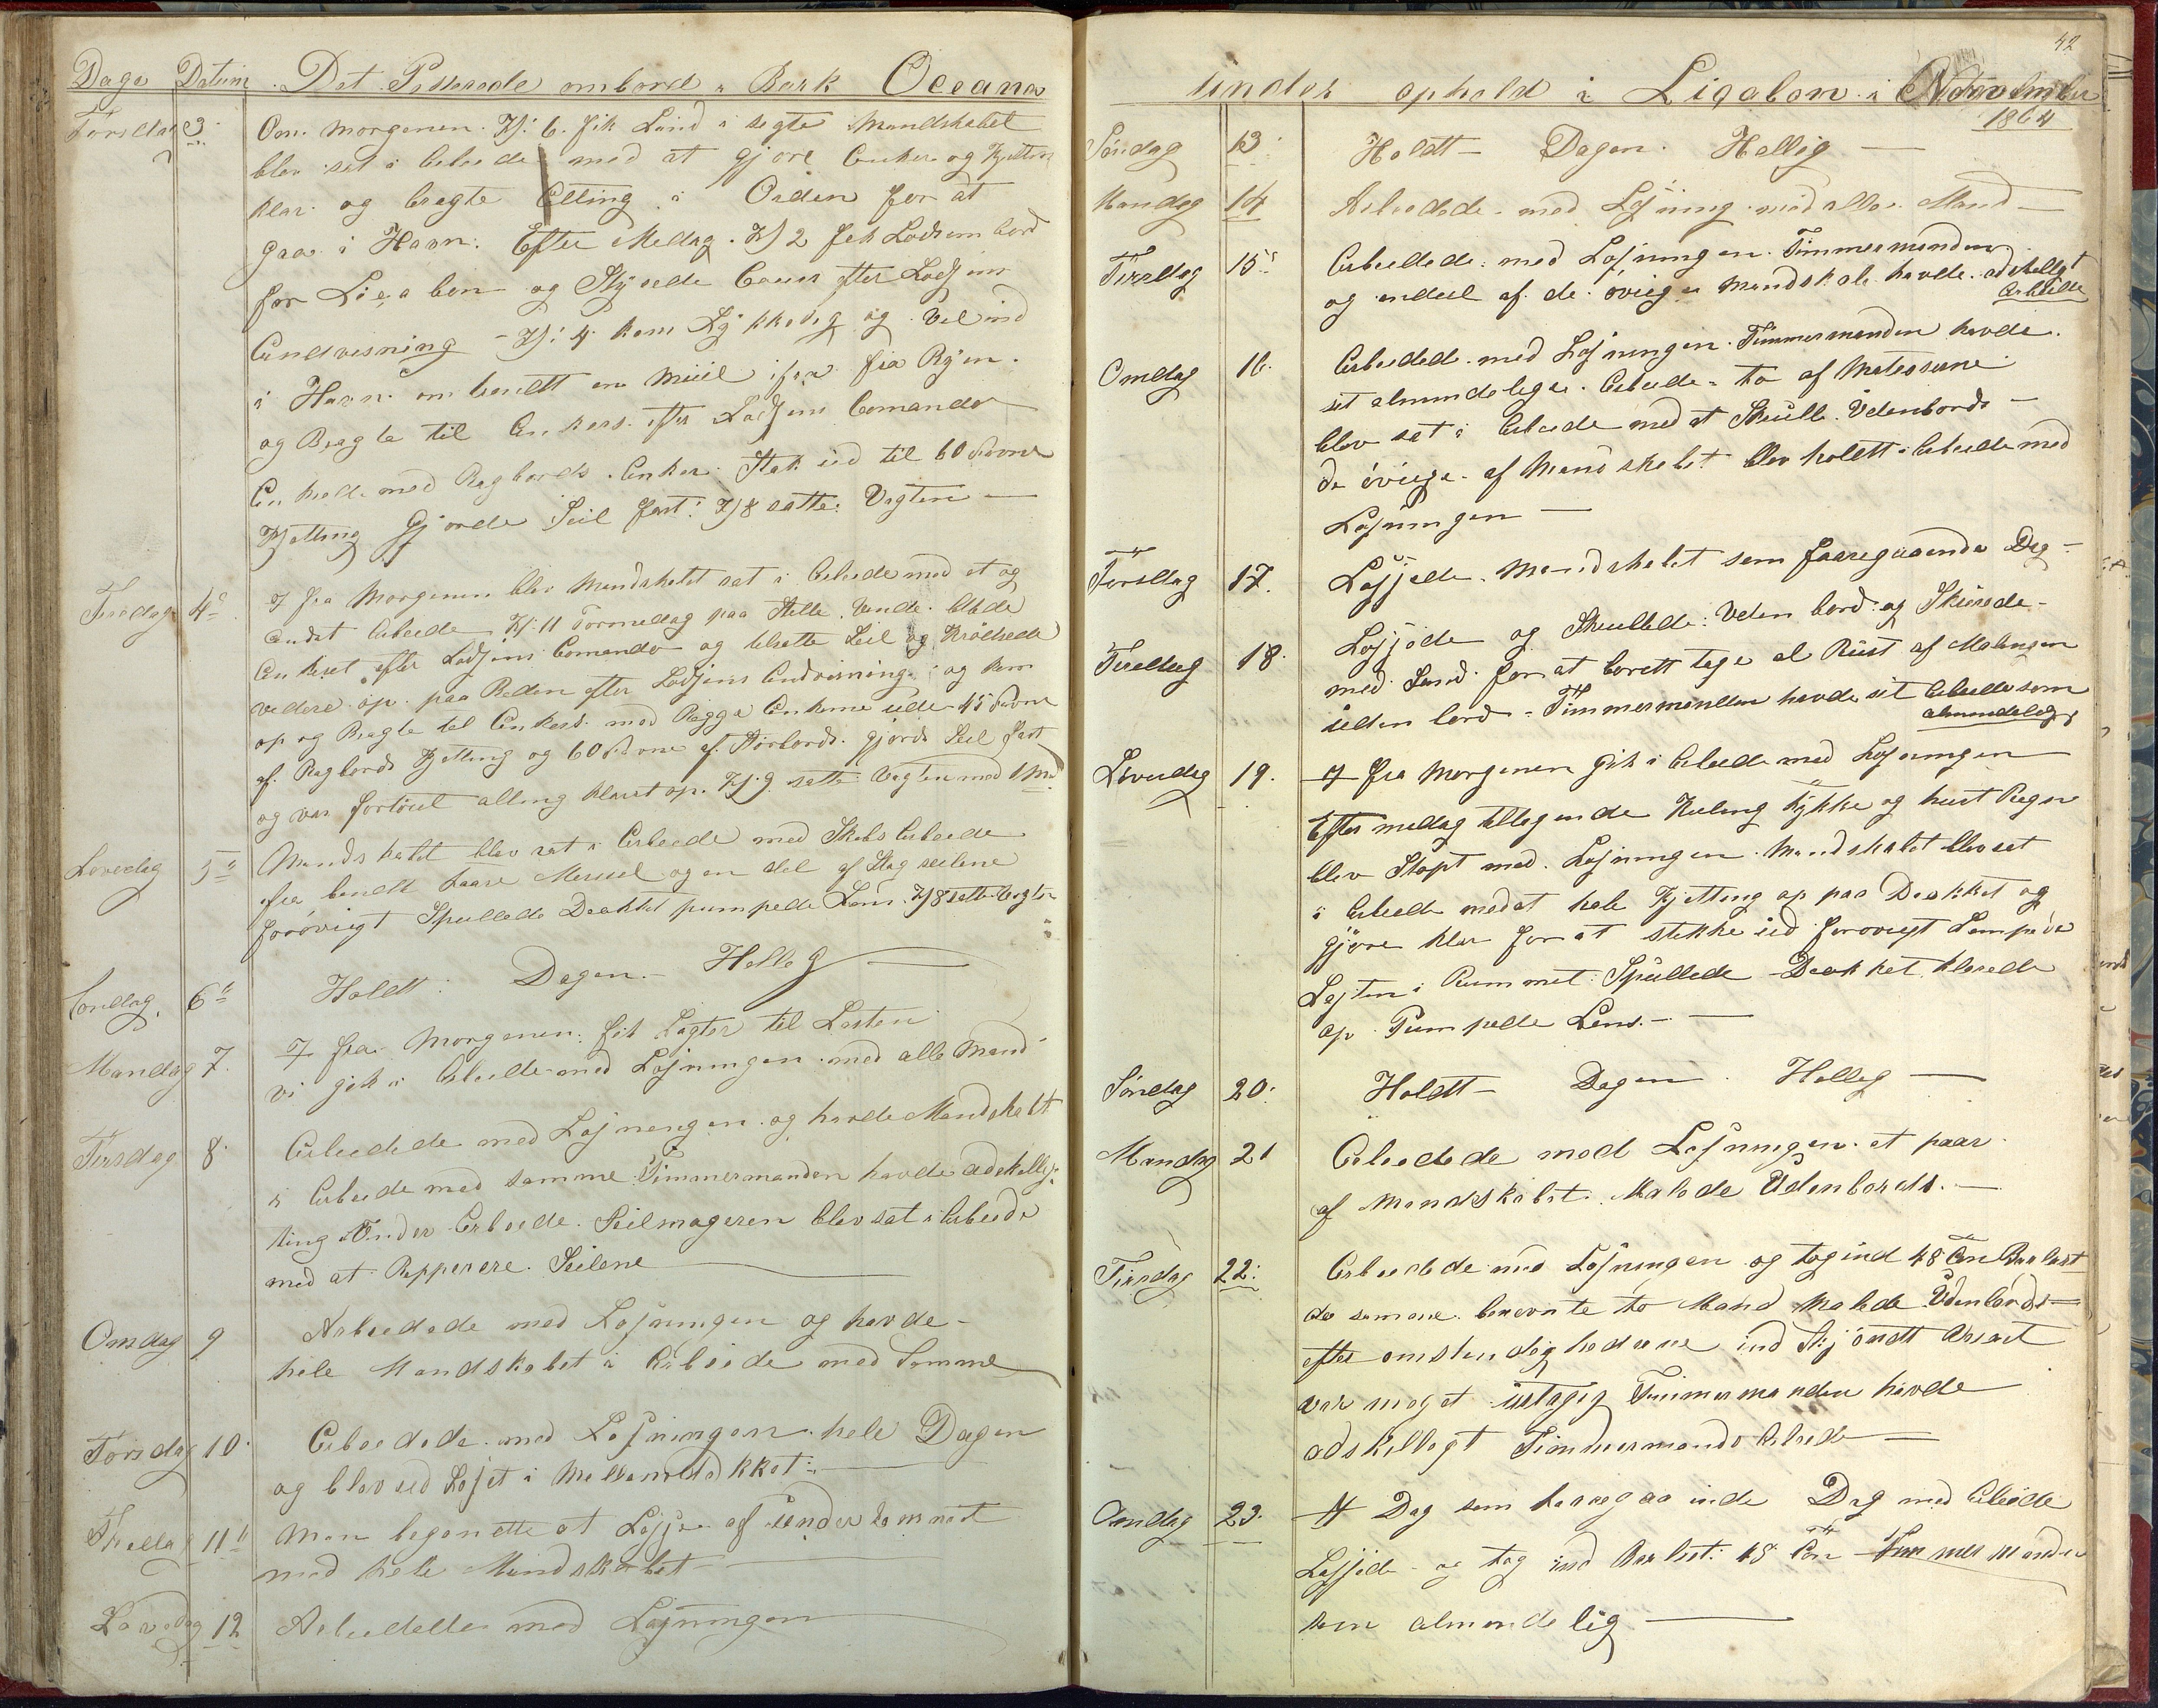 Dage Datum Det Passerede ombord i Bark Oceana
Torsdag 3. Om Morgenen Kl: 6. fik Land i sigte Mandskabet
blev sat i Arbeide med at gjøre Anker og Kjetting
klar og bragte Alting i Orden for at
gaa i Havn. Efter Middag. Kl 2 fik Lods om bord
for Ligabon og Styrede Cours efter Lodsens
Andvisning - Kl: 4 kom Lykkelig og Vel ind
i Havn. omtrendt en Miiil ifra fra Byen.
og Bragte til Ankers. efter Lodsens Comando
med Bagbords Anker. Stak ud til 60 Favne
Kjetting Gjorde Seil fast: Kl 8 satte Vagten —
Fredag 4de 7 fra Morgenen blev Mandskabet sat i Arbeide med et og
Andet Arbeide Kl: 11 Formedag paa Stille Vende lettede
Ankeret efter Lodsens Comando og tilsatte Seil og Krødsede
videre op paa Reden efter Lodsens Andvisning: og kom
op og Bragte til Ankers. med Begge Ankerne ude 45 Favne
af Bagbords Kjetting og 60 Favne af Stirbords. gjorde Seil fast
og var fortøiet alting klaret op. Kl 9 satte Vagten med 1 Md
Løverdag 5te Mandskabet blev sat i Arbeide med Skibs Arbeide
fra bendte Store Merseil og en del af Stag seilene
forøvrigt Spullede Dækket pumpede Læns. Kl 8 satte Vagten
Søndag. 6te Holdt: Dagen. Hellig —
Mandag 7. 7 fra Morgenen: fik Lægter til Lasten
vi gik i Arbeide med Losningen. med alle Mand
Tirsdag 8. Arbeidede med Losningen og havde Mandskabet
i Arbeide med samme: Timmermanden havde adskillig
ting Under Arbeide. Seilmageren blev sat i Arbeide
med at Repperere. Seilene —
Onsdag 9 Arbeidede med Losningen og havde -
hele Mandskabet i Arbeide med Samme
Torsdag 10. Arbeidede med Losningen hele Dagen
og blev ud Losset i Mellemdækket: —
Fredag 11te Man begynte at Losse af Underrommet
med hele Mandskabet —
Løverdag 12 Arbeidede med Losningen
42
under ophold i Ligabon i November
1864
Søndag 13. Holdt — Dagen. Hellig —
Mandag 14 Arbeidede med Losning med alle Mand —
Tirsdag 15. Arbeidede med Losningen. Timmermanden
og endeel af de øvrige Mandskab havde adskilligt
Arbeide
Onsdag 16. Arbeidede med Losningen. Timmermanden havde
sit almindelige. Arbeide. to af Matroserne
blev sat i Arbeide med at Skulle Udenbords —
de øvrige af Mandskabet blev holdt i Arbeide med
Losningen —
Torsdag 17. Lossede. Mandskabet som foregaaende Dag -
Fredag 18. Lossede og Skullede Uden bord og Skurede -
med Sand for at bortt tage al Rust af Malingen
uden bord - Timmermanden havde sit Arbeide som
almindelig
Løverdag 19. 7 fra Morgenen gik i Arbeide med Losningen
Eftermedag tiltagende Kuling tykke og hvist Regn
blev Stopt med Losningen. Mandskabet blev sat
i Arbeide med at hale Kjetting op paa Dækket og
gjøre klar for at stikke ud forøvrigt Lempede
Lasten i Rummet. Spullede Dækket klarede
op Pumpede Lens. —
Søndag 20. Holdt — Dagen. Hellig —
Mandag 21 Arbeidede med Losningen. et paar
af Mandskabet. Malede Udenbords. —
Tirsdag 22. Arbeidede med Losningen og tog ind 48 Ton Barlast
de samme benevnte to Mand Malede Udenbords —
efter omstendighederne indskjøndt
var meget ustagig Timmermanden havde
adskilligt Timmermands Arbeide —
Onsdag 23. 7 Dag som foregaaende Dag med Arbeide
Lossede og tog ind Barlast: 48 Ton Timmermanden
som almindelig —